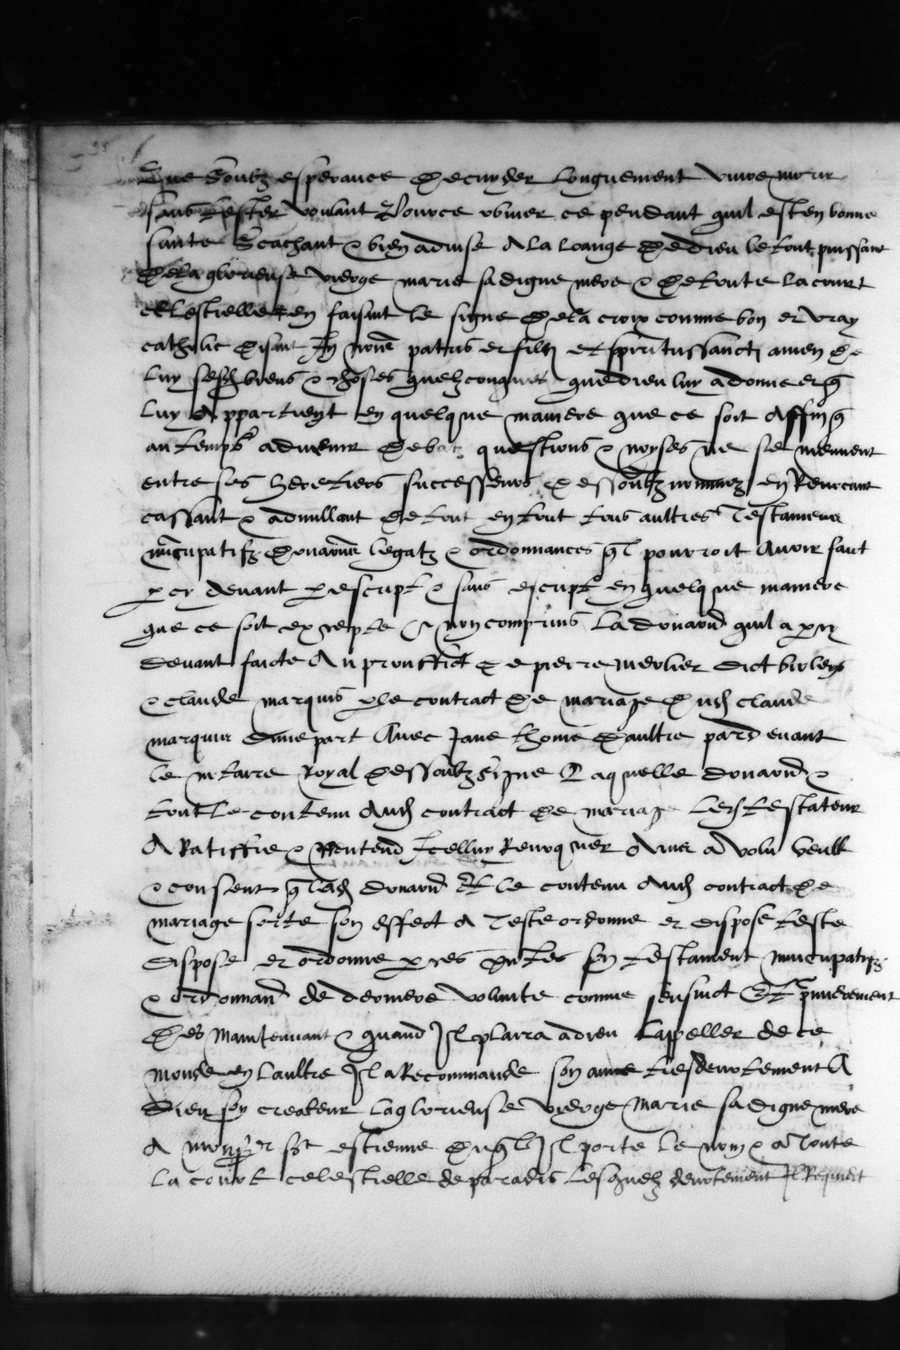 Que soubz esperance de cuyder longuement vivre morir
sans tester voulant pource obvier ce pendant quil est en bonne
sante Scachant & bien advise A la loange de dieu le tout puissant
de la glorieuse vierge marie sa digne mere & de toute la court
celestielle et en faisant le signe de la croix comme bon et vray
catholic disant In nome patris et filii et spiritussancti amen de
luy ses biens & choses quelzconques que dieu luy a donne et q
luy Appartient en quelque maniere que ce soit Affin q
au temps advenir debatz questions & noyses ne se mennent
entre ses heretiers successeurs dessoubz nommez en Revocant
cassant & adnullant de tout en tout tous aultres Testamens
nuncupatifz donaons legatz & ordonnances ql pourroit Avoir faict
p cy devant p escript & sans escript en quelque maniere
que ce soit excepte & non comprins La donaon quil a p cy
devant faicte Au prouffict de pierre merlier dict
& claude marquis p le contract de mariage dud claude
marquis dune part Avec Jane thome daultre par devant
le notaire Royal dessoubz signe Laquelle donaon &
tout le contenu Aud contract de mariage led testateur
A Ratiffie & Nentend Icelluy Revoquer Ains a volu veult
& consent q lad donaon Et le contenu Aud contract de
mariage sorte son effect A Teste ordonne et dispose teste
dispose et ordonne p ces pntes son testament nuncupatifz
& ordonnan de derniere volunte comme sensuict Et premierement
Des Maintenant & quand Il plaira a dieu Lappeller de ce
monde en laultre Il a Recommande son ame tresdevotement A
Dieu son createur La glorieuse vierge Marie sa digne mere
A monsr st estienne duql Il porte le nom & a Toute
La court celestielle de paradis Lesquelz devotement Il Requiert